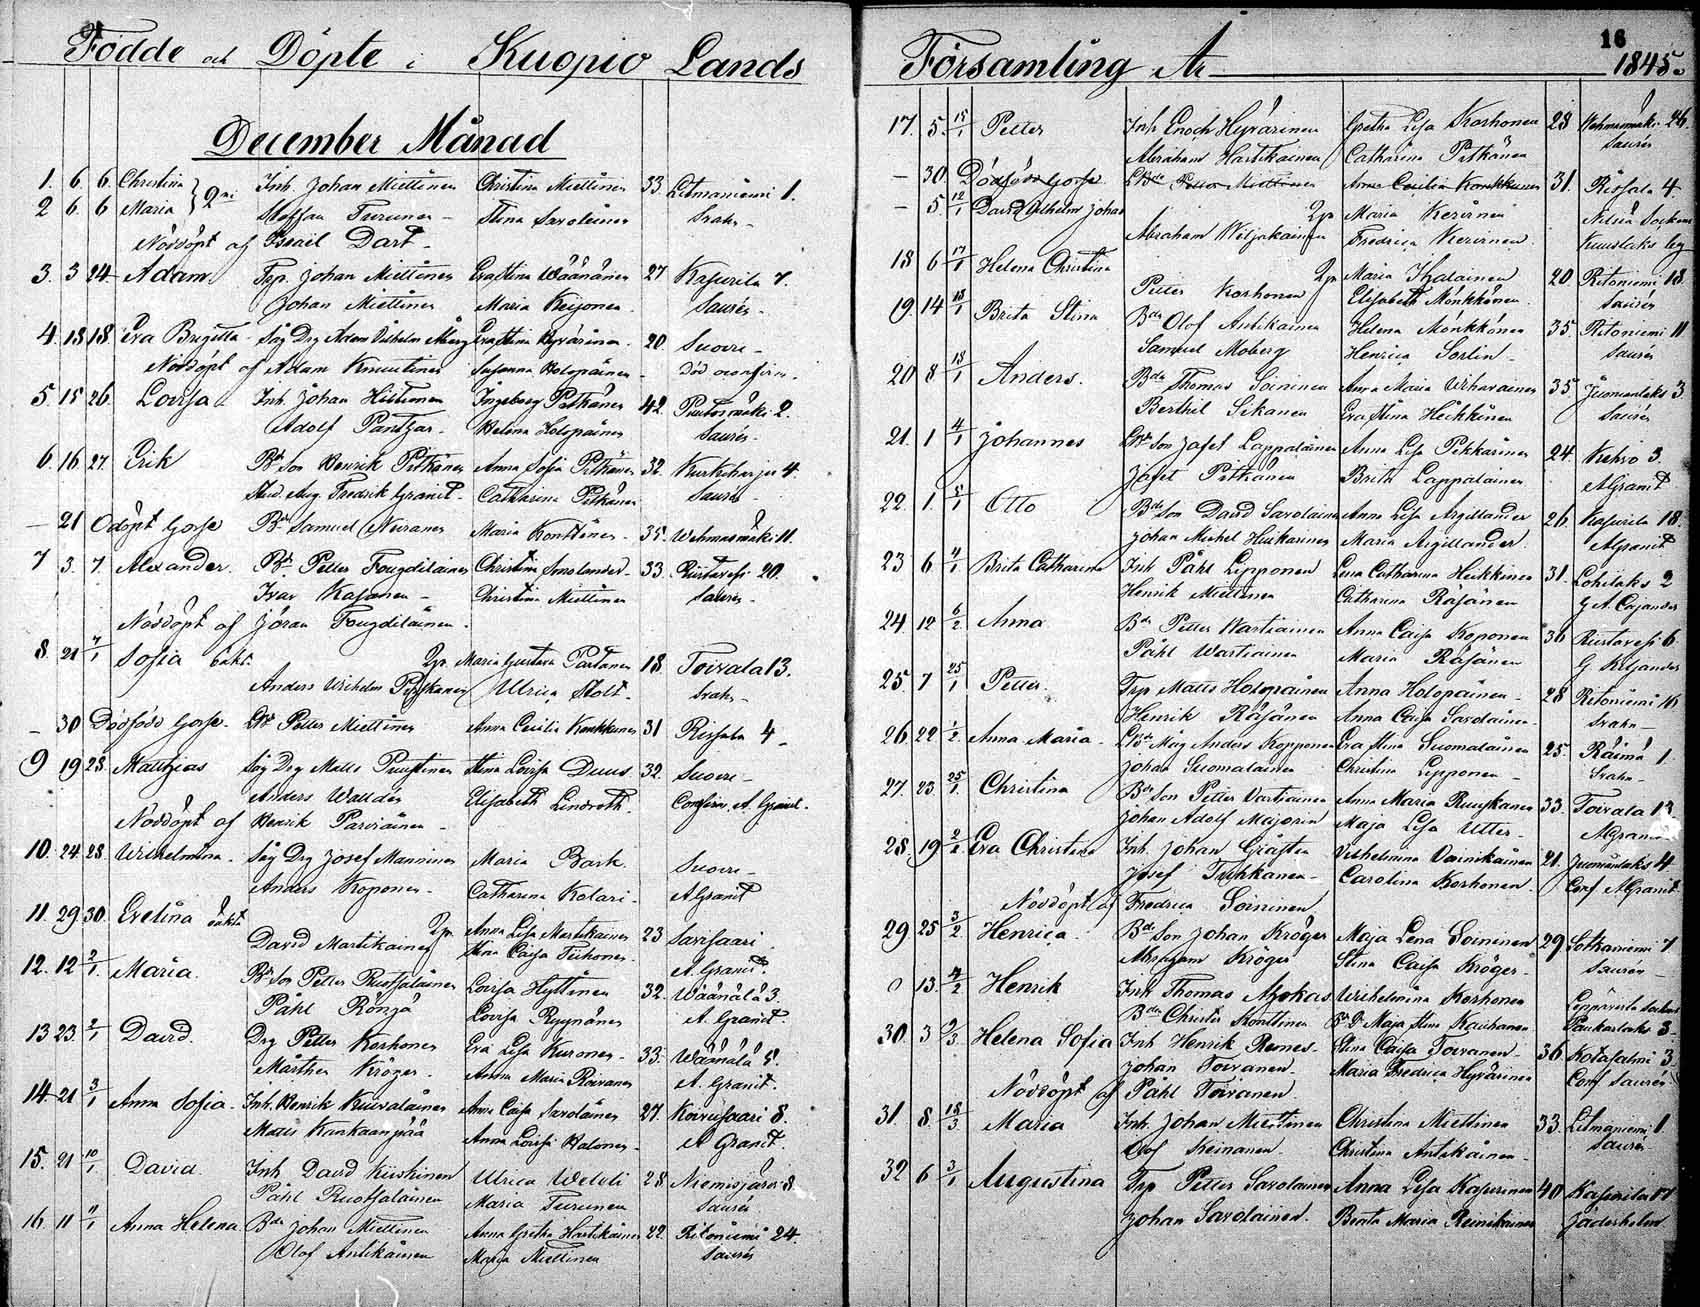 Födde och Döpte i Kuopio Lands
December Månad
1. 6. 6. Christina Inh. Johan Miettinen Christina Miettinen 33. Litmaniemi 1.
2 6 6 Maria Staffan Turunen Stina Savolainen
Nöddöpt af Dart
3. 3 24 Adam Trp. Johan Miettinen Eva Stina Wäänänen 27 Kasurila 7.
Johan Miettinen Maria Keijonen Saurén
4. 18 18. Eva Brigitta Eva Stina Hyvärinen 20. Suovu
Nöddöpt af Adam Knuutinen Susanna Holopainen
5. 15 26. Lovisa Inh. Johan Hiltunen Ingeborg Pitkänen 42. 2.
Adolf Pantzar Helena Holopainen Saurén
6. 16 27. Erik Bd Son Henrik Pitkänen Anna Sofia Pitkänen 32. Kurkiharju 4
Stud. Aug. Fredrik Granit Catharina Pitkänen Saurén
— 21 Odöpt Gosse Bd Samuel Maria Konttinen 35. Wehmasmäki 11.
7 3. 7 Alexander Bd Petter Fougdilainen Christina Smolander 33. Riistavesi 20.
Ivar Kasanen Christina Miettinen Saurén
Nöddöpt af Jöran Fougdilainen
8. 21 7/1 Sofia oäkt. Maria Gustava Partanen 18. Toivala 13.
Anders Wilhelm Ulrica Stolt
— 30 Dödfödd Gosse Petter Miettinen Anna Cecilia Konkkunen 31 Risjala 4
9 19 28. Matthias Matts Puustinen Stina Lovisa Duus 32. Suovu
Anders Walldén Elisabeth Lindroth A. Granit
Nöddöpt af Henrik Parviainen
10. 24 28 Wilhelmina Josef Manninen Maria Bark Suovu
Anders Koponen Catharina Kolari A Granit
11. 29 30. Evelina oäkta Anna Lisa Martikainen 23 Savisaari
David Martikainen Stina Caisa Tiihonen A. Granit
12. 12 2/1. Maria Bd Son Petter Ruotsalainen Lovisa Hyttinen 32. Wäänälä 3.
Påhl Rönkä Lovisa Ryynänen A. Granit
13 23. 2/1 David. Drg Petter Korhonen Eva Lisa Kuronen 33. Wäänälä 5.
Mårthen Kröger Anna Maria Roivanen A. Granit.
14 21 3/1 Anna Sofia Inh. Henrik Kuivalainen Anna Caisa Savolainen 27. Koivusaari 8.
Matts Kankaanpää Anna Lovisa Halonen A Granit
15. 21 10/1 David Inh David Kiiskinen Ulrica 28 Niemisjärvi 8
Påhl Ruotsalainen Maria Turunen Saurén
16 11 11/1 Anna Helena Bd Johan Miettinen Anna Gretha Hartikainen 22. Ritoniemi 24.
Olof Antikainen Maria Miettinen Saurén
Församling År 1845.
16
17. 5. 15/1 Petter Inh Enoch Hyvärinen Gretha Lisa Korhonen 28 Wehmasmäki 26.
Abraham Hartikainen Catharina Pitkänen Saurén
— 30. Dödfödd Gosse Petter Miettinen Anna Cecilia Konkkunen 31. Risjala 4
— 5. 12/1 David Wilhelm Johan Maria Keränen Nilsiä Socken
Abraham Wiljakainen Fredrica Keränen
18 6 17/1 Helena Christina Maria Ikalainen 20. Ritoniemi 18.
Petter Korhonen Elisabeth Mönkkönen Saurén
19. 14 18/1 Brita Stina Bd Olof Antikainen Helena Mönkkönen 35. Ritoniemi 11
Samuel Moberg Henrica Sorlin Saurén
20 8 18/1 Anders. Bd Thomas Soininen Anna Maria Wihavainen 35. Juomanlaks 3.
Berthil Sikanen Eva Stina Heikkinen Saurén
21. 1 4/1 Johannes Son Jafet Lappalainen Anna Lisa Pekkarinen 24. Kehvo 3.
Jafet Pitkänen Brita Lappalainen A Granit
22. 1. 5/1 Otto Bd Son David Savolainen Anna Lisa Argillander 26. Kasurila 18.
Johan Michel Huskainen Maria Argillander A Granit
23 6 4/1 Brita Catharina Inh Påhl Lipponen Lena Catharina Heikkinen 31. 2
Henrik Miettinen Catharina Räsänen G A. Cajander
24 12 6/2 Anna Bd Petter Wartiainen Anna Caisa Koponen 36 Riistavesi 6
Påhl Wartiainen Maria Räsänen
25. 7 25/1 Petter Trp Matts Holopainen Anna Holopainen 28 Ritoniemi 16
Henrik Räsänen Anna Caisa Savolainen
26. 22 1/2 Anna Maria Anders Kopponen Eva Stina Suomalainen 25. Räimä 1
Johan Suomalainen Christina Lipponen
27. 23. 25/1 Christina Bd Son Petter Vartiainen Anna Maria Ruuskanen 33. Toivala 13
Johan Adolf Majorin Maja Lisa Utter A Granit
28. 19 2/2 Eva Christina Inh. Johan Grästen Vilhelmina Vainikainen 21. Juomanlaks 4
Josef Tuhkanen Carolina Korhonen Conf A Granit
Nöddöpt af Fredrica Soininen
29 25 3/2 Henrica Bd Son Johan Kröger Maja Lena Soininen 29 Lotkaniemi 7
Abraham Kröger Stina Caisa Kröger Saurén
0 13. 4/2 Henrik Inh Thomas Wilhelmina Korhonen Leppävirta
Bd Christer Konttinen Maja Stina Kauhanen Paukarlaks 3
30. 3 2/3 Helena Sofia Inh Henrik Remes Stina Caisa Toivanen 36 Kotasalmi 3
Johan Toivanen Maria Fredrica Hyvärinen Conf Saurén
Nöddöpt af Påhl Toivanen
31. 8. 18/3 Maria Inh. Johan Miettinen Christina Miettinen 33. Litmaniemi 1
Olof Keinanen Christina Antikainen Saurén
32 6 3/1 Augustina Trp Petter Savolainen Anna Lisa Kasurinen 40 Kasurila 17
Johan Savolainen Beata Maria Reinikainen Jäderholm